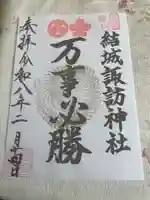 結城諏訪神社
万事必勝
奉拝令和八年二月